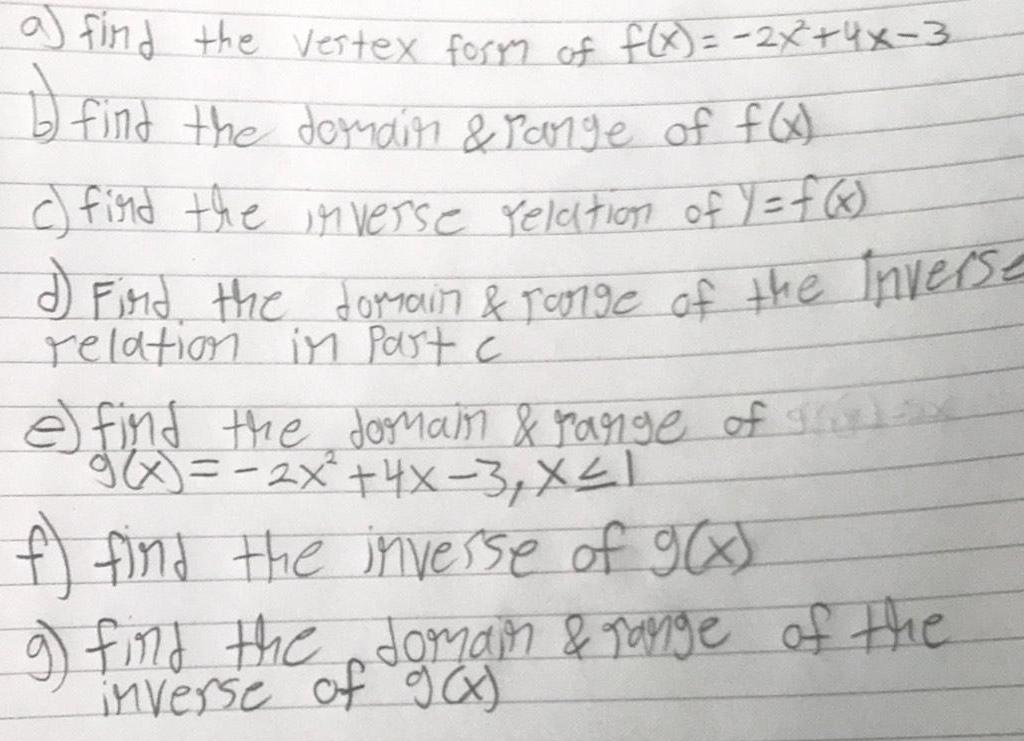 a) find the vertex form of f(x) = -2x²+4x-3
b) find the domain & range of f(x)
c) find the inverse relation of y=f(x)
d) Find the domain & range of the Inverse
relation in Part c
e) find the domain & range of
g(x) = -2x²+4x-3, x≤1
f) find the inverse of g(x)
g) find the domain & range of the
inverse of g(x)